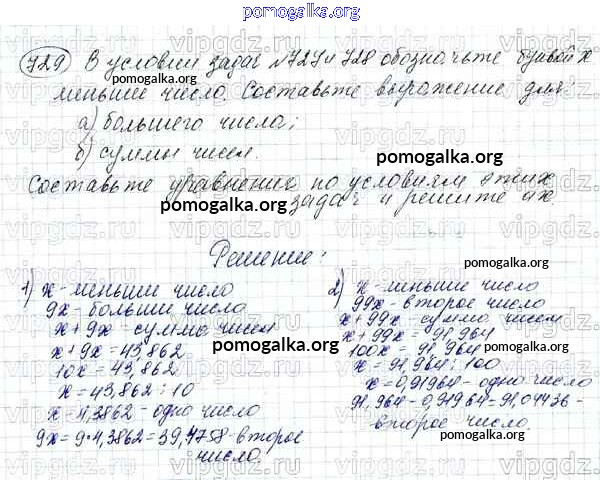 pomogalka.org
729 В условии задач №727 и 728 обозначьте буквой х
меньшее число. Составьте выражение для:
а) большего числа;
б) суммы чисел.
Составьте уравнение по условиям этих
задач и решите их.
Решение:
1) х - меньшее число
9х - больши число
х + 9х - сумма чисел
х + 9х = 43,862
10х = 43,862
х = 43,862 : 10
х = 4,3862 - одно число
9х = 9 • 4,3862 = 39,4758 - второе
число.
2) х - меньшее число
99х - второе число
х + 99х - сумма чисел
х + 99х = 91,964
100х = 91,964
х = 91,964 : 100
х = 0,91964 - одно число
91,964 - 0,91964 = 91,04436 -
второе число.
pomogalka.org
pomogalka.org
pomogalka.org
pomogalka.org
pomogalka.org
pomogalka.org
pomogalka.org
pomogalka.org